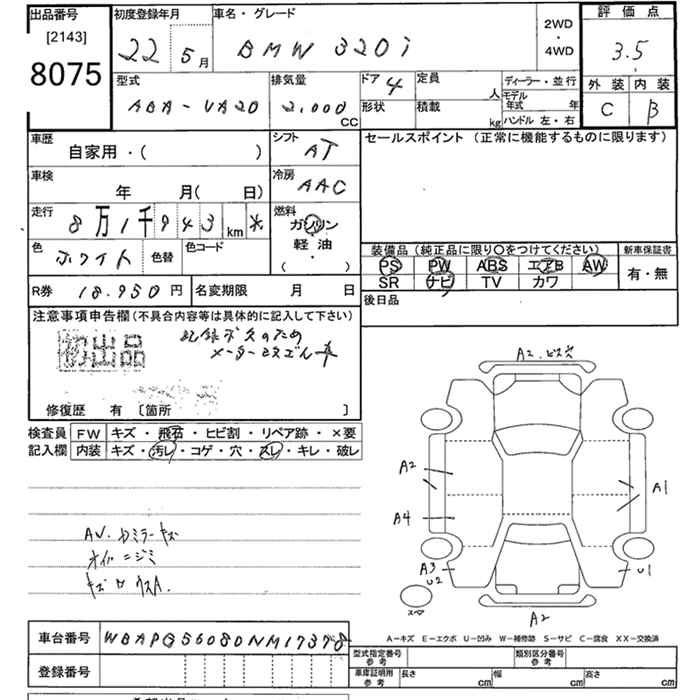 出品番号
[2143]
8075
初度登録年月
22 5月
車名・グレード
BMW 320i
2WD
・
4WD
評価点
3.5
外装 内装
C B
型式
ABA-VA20
排気量
2,000
CC
ドア 4
形状
定員
人
積載
kg
ディーラー・並行
モデル
年式 年
ハンドル 左・右
車歴
自家用・( )
シフト
AT
セールスポイント (正常に機能するものに限ります)
車検
年 月( 日)
冷房
AAC
走行
8万1千943km *
燃料
ガソリン
軽油
( ・ )
色
ホワイト
色替
色コード
装備品(純正品に限り〇をつけてください)
PS PW ABS エアB AW
SR ナビ TV カワ
新車保証書
有・無
R券 18.950円
名変期限 月 日
後日品
注意事項申告欄(不具合内容等は具体的に記入して下さい)
初出品
記録不久のため
修復歴 有 [箇所 ]
検査員
記入欄
FW キズ・飛石・ヒビ割・リペア跡・×要
内装 キズ・汚レ・コゲ・穴・スレ・キレ・破レ
A2.ビス穴
A2
A4
A1
A3
U2
U1
スペア
A2
AV.
オイルニジミ
A-キズ E-エクボ U-凹み W-補修跡 S-サビ C-腐食 XX-交換済
車台番号 WBAPG56080NM17378
登録番号
型式指定番号
参考
類別区分番号
参考
車庫証明用
参考
長さ cm
幅 cm
高さ cm